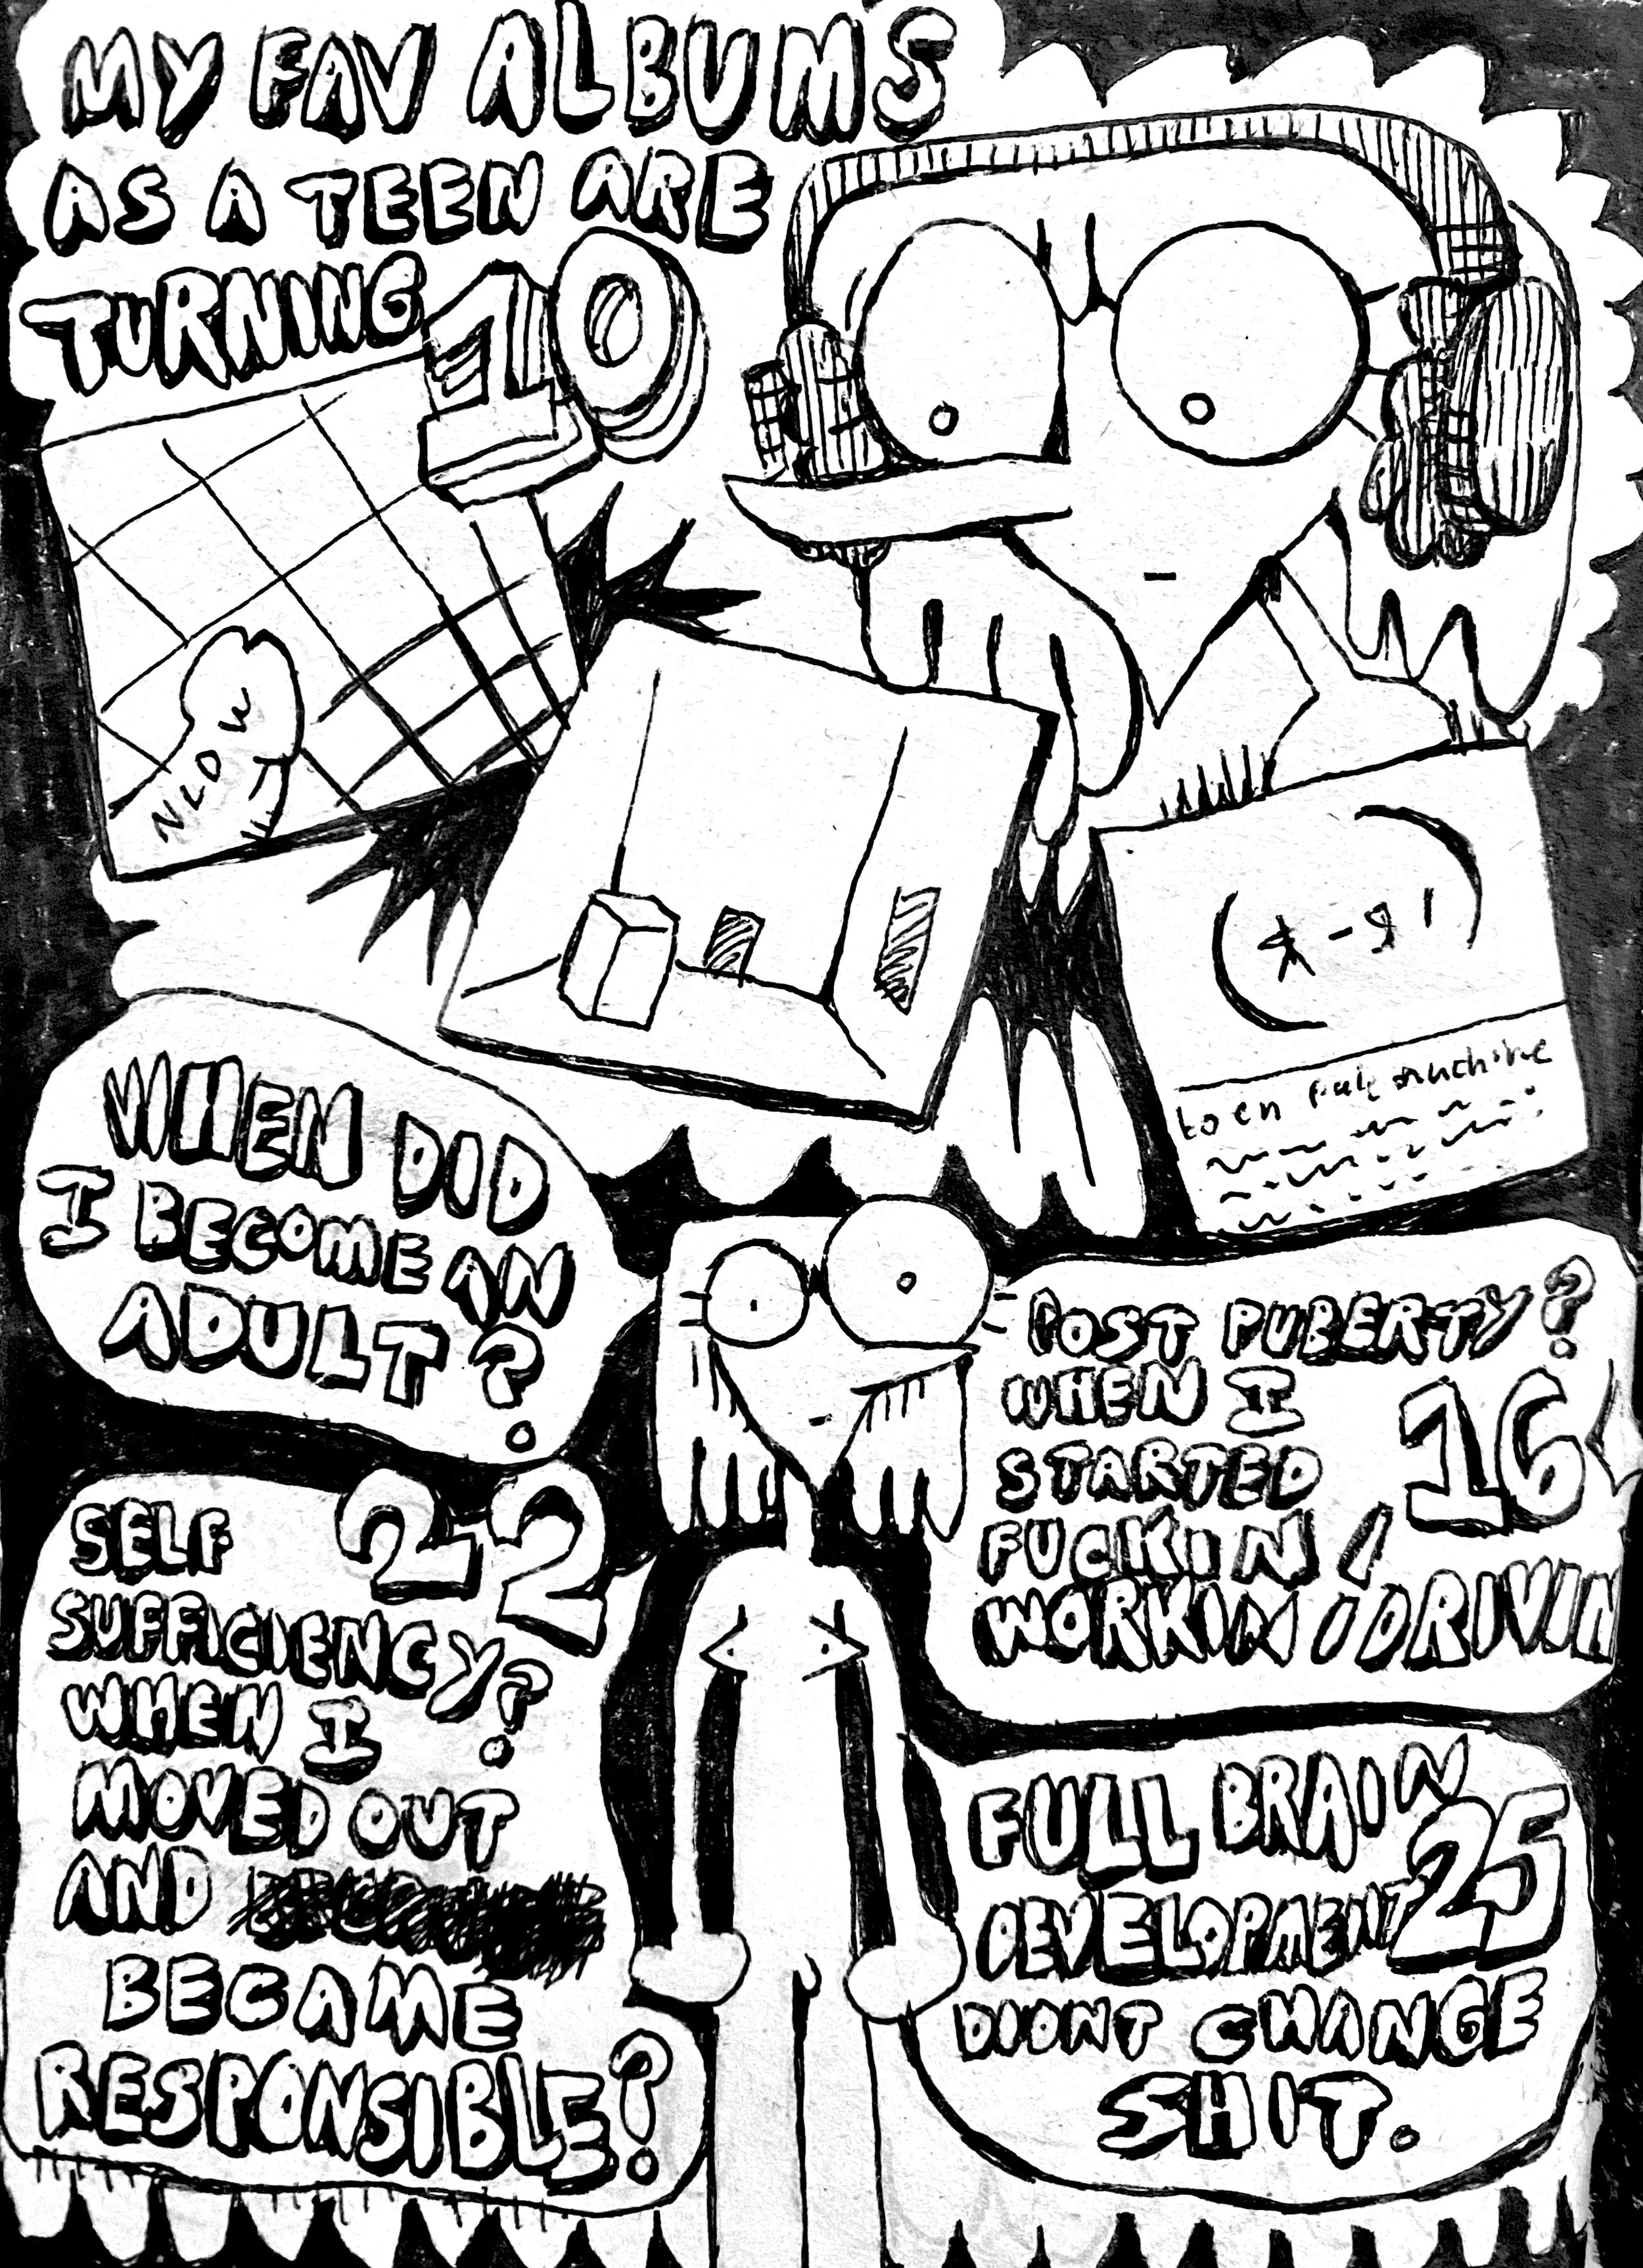 MY FAV ALBUMS
AS A TEEN ARE
TURNING 10
NLDW
WHEN DID
I BECOME AN
ADULT?
POST PUBERTY?
WHEN I 16
STARTED
FUCKIN /
WORKIN / DRIVIN
SELF 22
SUFFICIENCY?
WHEN I
MOVED OUT
AND
BECAME
RESPONSIBLE?
FULL BRAIN
DEVELOPMENT 25
DIDNT CHANGE
SHIT.